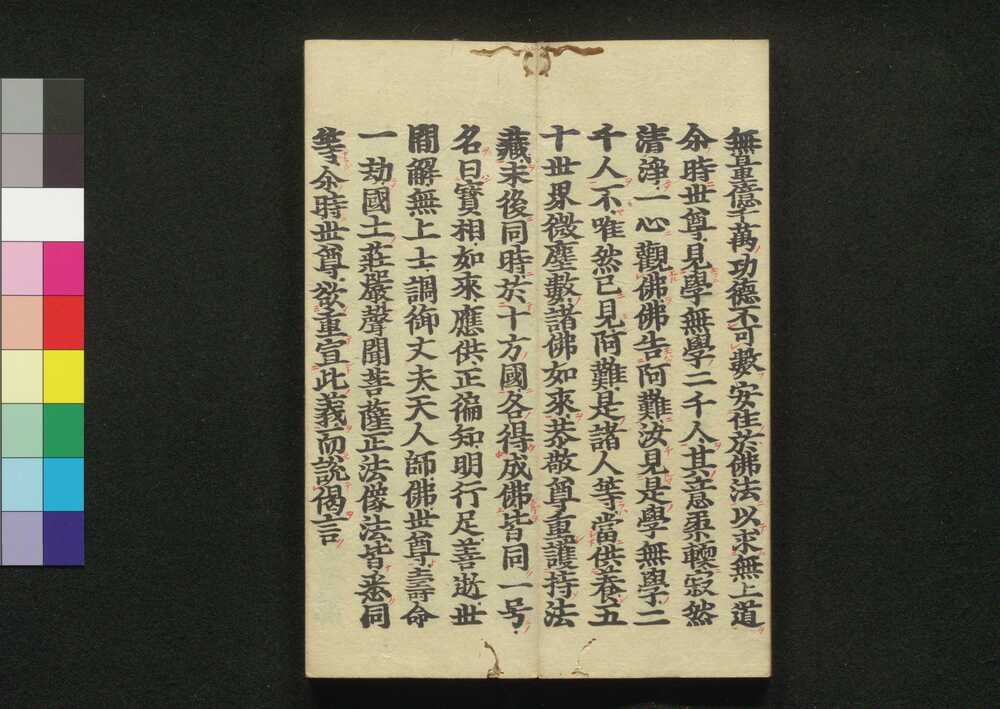 無量億千萬功德不可數安住於佛法以求無上道
尒時世尊見學無學二千人其意柔輭寂然
清淨一心觀佛佛告阿難汝見是學無學二
千人不唯然已見阿難是諸人等當供養五
十世界微塵數諸佛如來恭敬尊重護持法
藏末後同時於十方國各得成佛皆同一号
名曰寶相如來應供正徧知明行足善逝世
間解無上士調御丈夫天人師佛世尊壽命
一劫國土莊嚴聲聞菩薩正法像法皆悉同
等尒時世尊欲重宣此義而說偈言